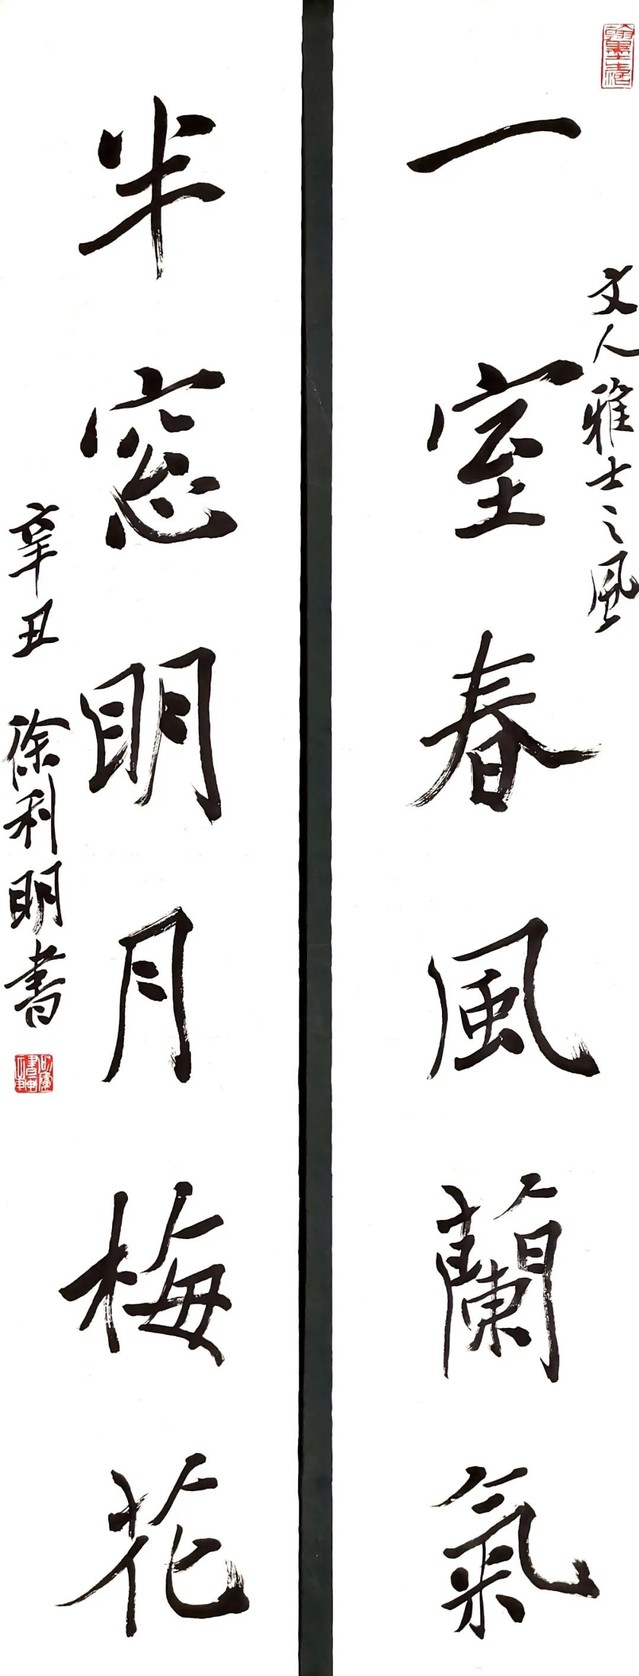 文人雅士之風
一室春風蘭氣
半窓明月梅花
辛丑 徐利明書